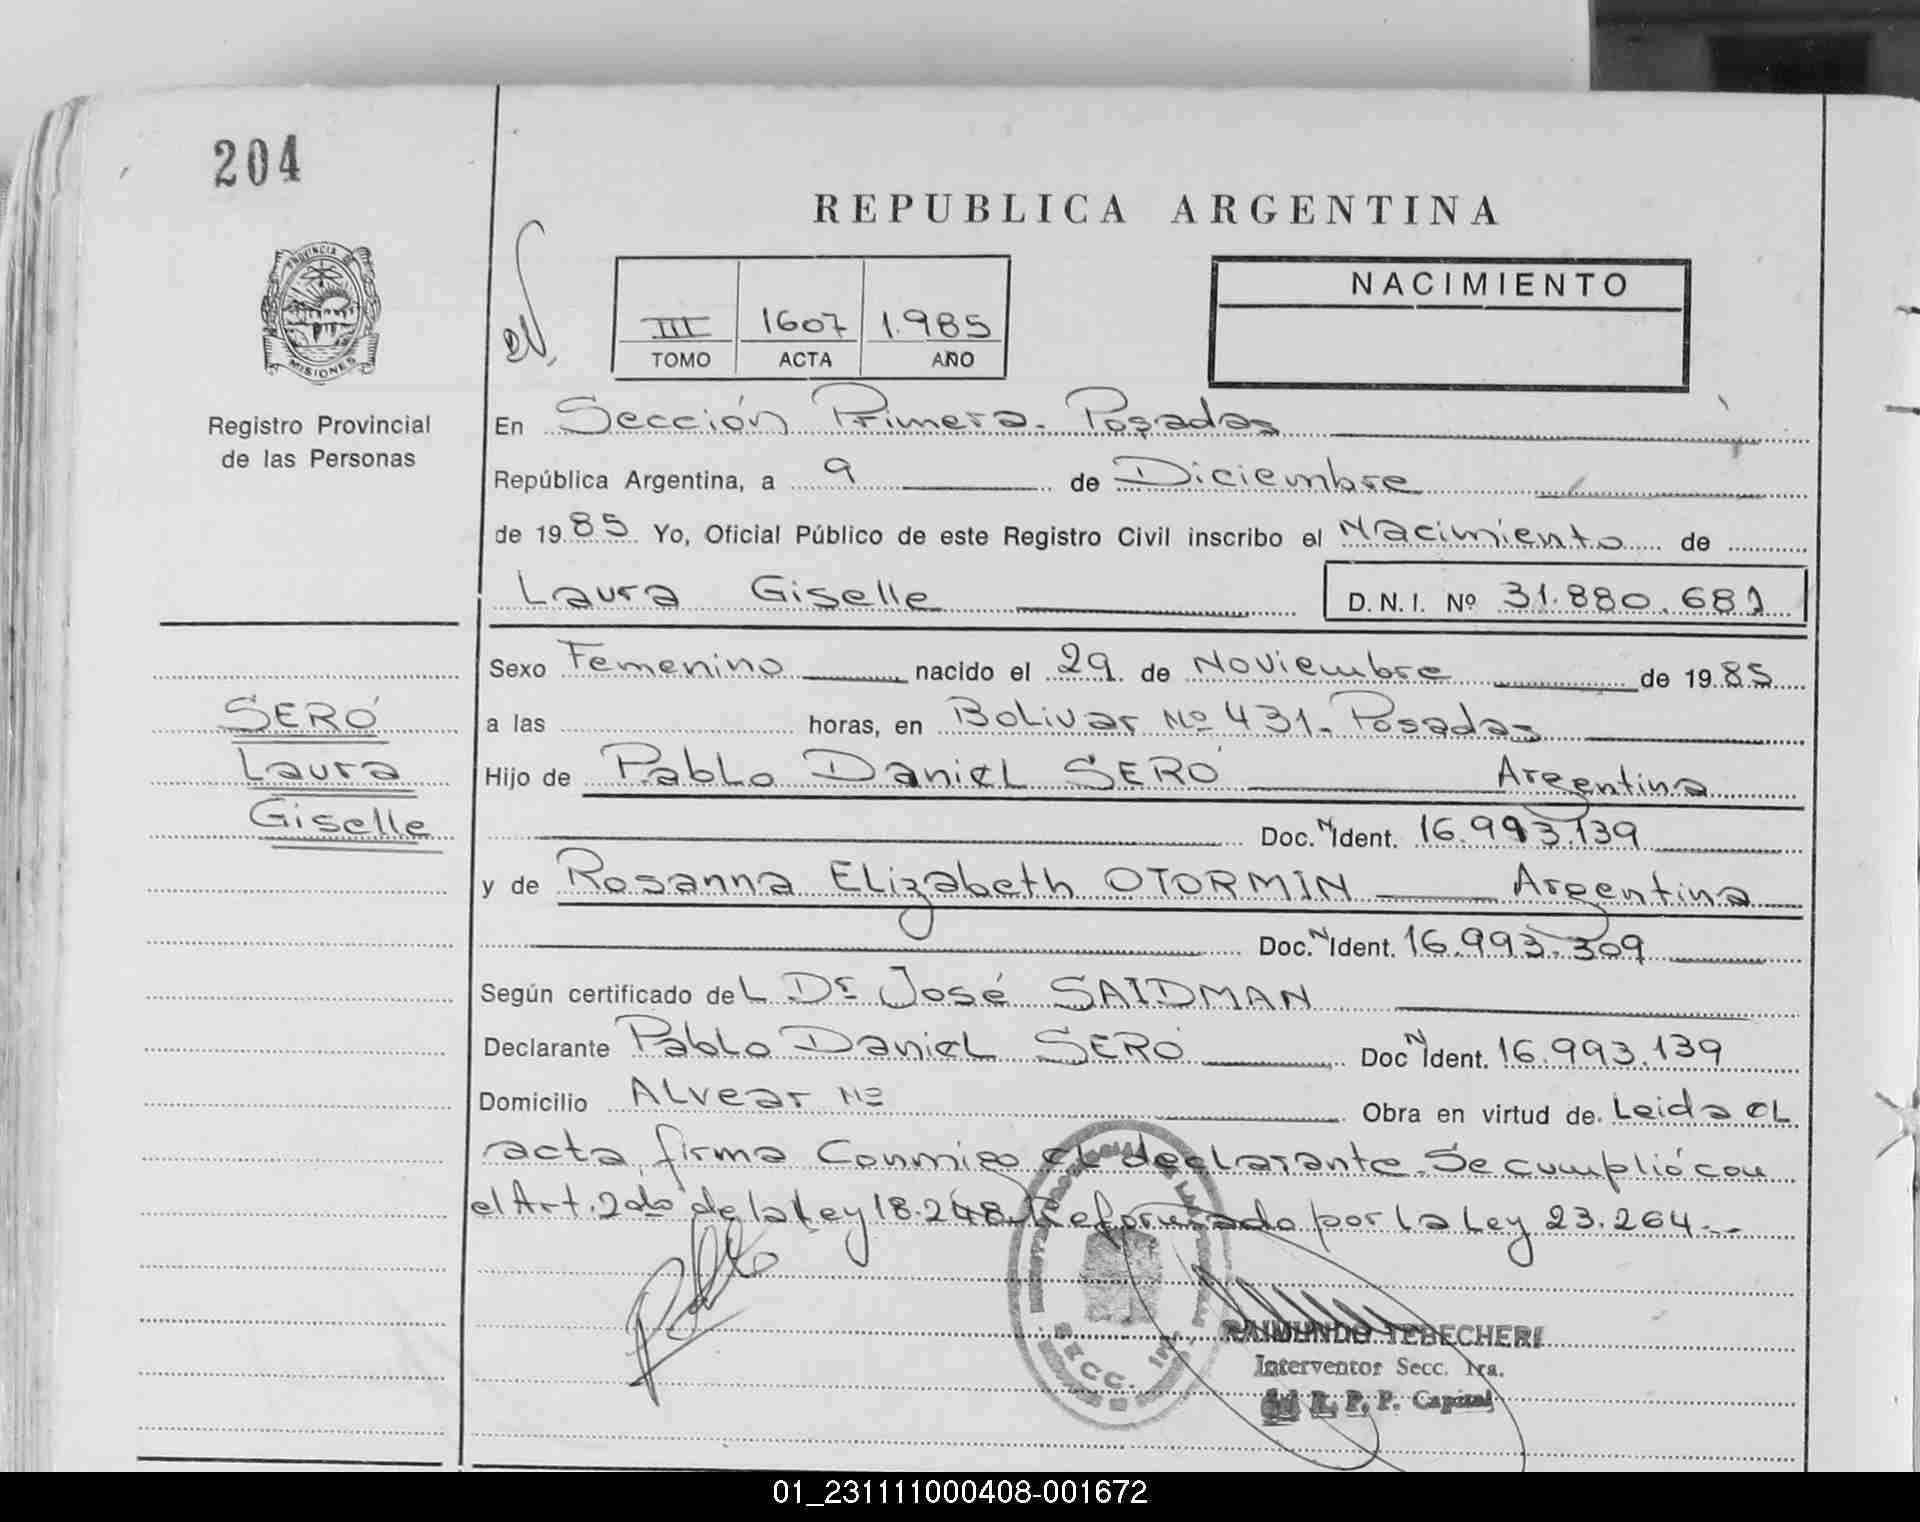 204
REPUBLICA ARGENTINA
PROVINCIA DE
MISIONES
Registro Provincial
de las Personas
III 1607 1.985
TOMO ACTA AÑO
NACIMIENTO
En Sección Primera. Posadas
República Argentina, a 9 de Diciembre
de 1985 Yo, Oficial Público de este Registro Civil inscribo el Nacimiento de
Laura Giselle D.N.I. Nº 31.880.681
Sexo Femenino nacido el 29 de Noviembre de 1985
SERÓ
Laura
Giselle
a las horas, en Bolivar Nº 431. Posadas
Hijo de Pablo Daniel SERÓ Argentina
Doc. N Ident. 16.993.139
y de Rosanna Elizabeth OTORMIN Argentina
Doc. N Ident. 16.993.309
Según certificado del Dr José SAIDMAN
Declarante Pablo Daniel SERÓ Doc N Ident. 16.993.139
Domicilio Alvear Nº Obra en virtud de. Leida el
acta, firma Conmigo el declarante. Se cumplió con
el Art. 2do de la Ley 18.248 Reformado por la Ley 23.264.-
RAIMUNDO TEBECHERI
Interventor Secc. 1ra.
del R. P. P. Capital
SECC. 1ra
01_231111000408-001672